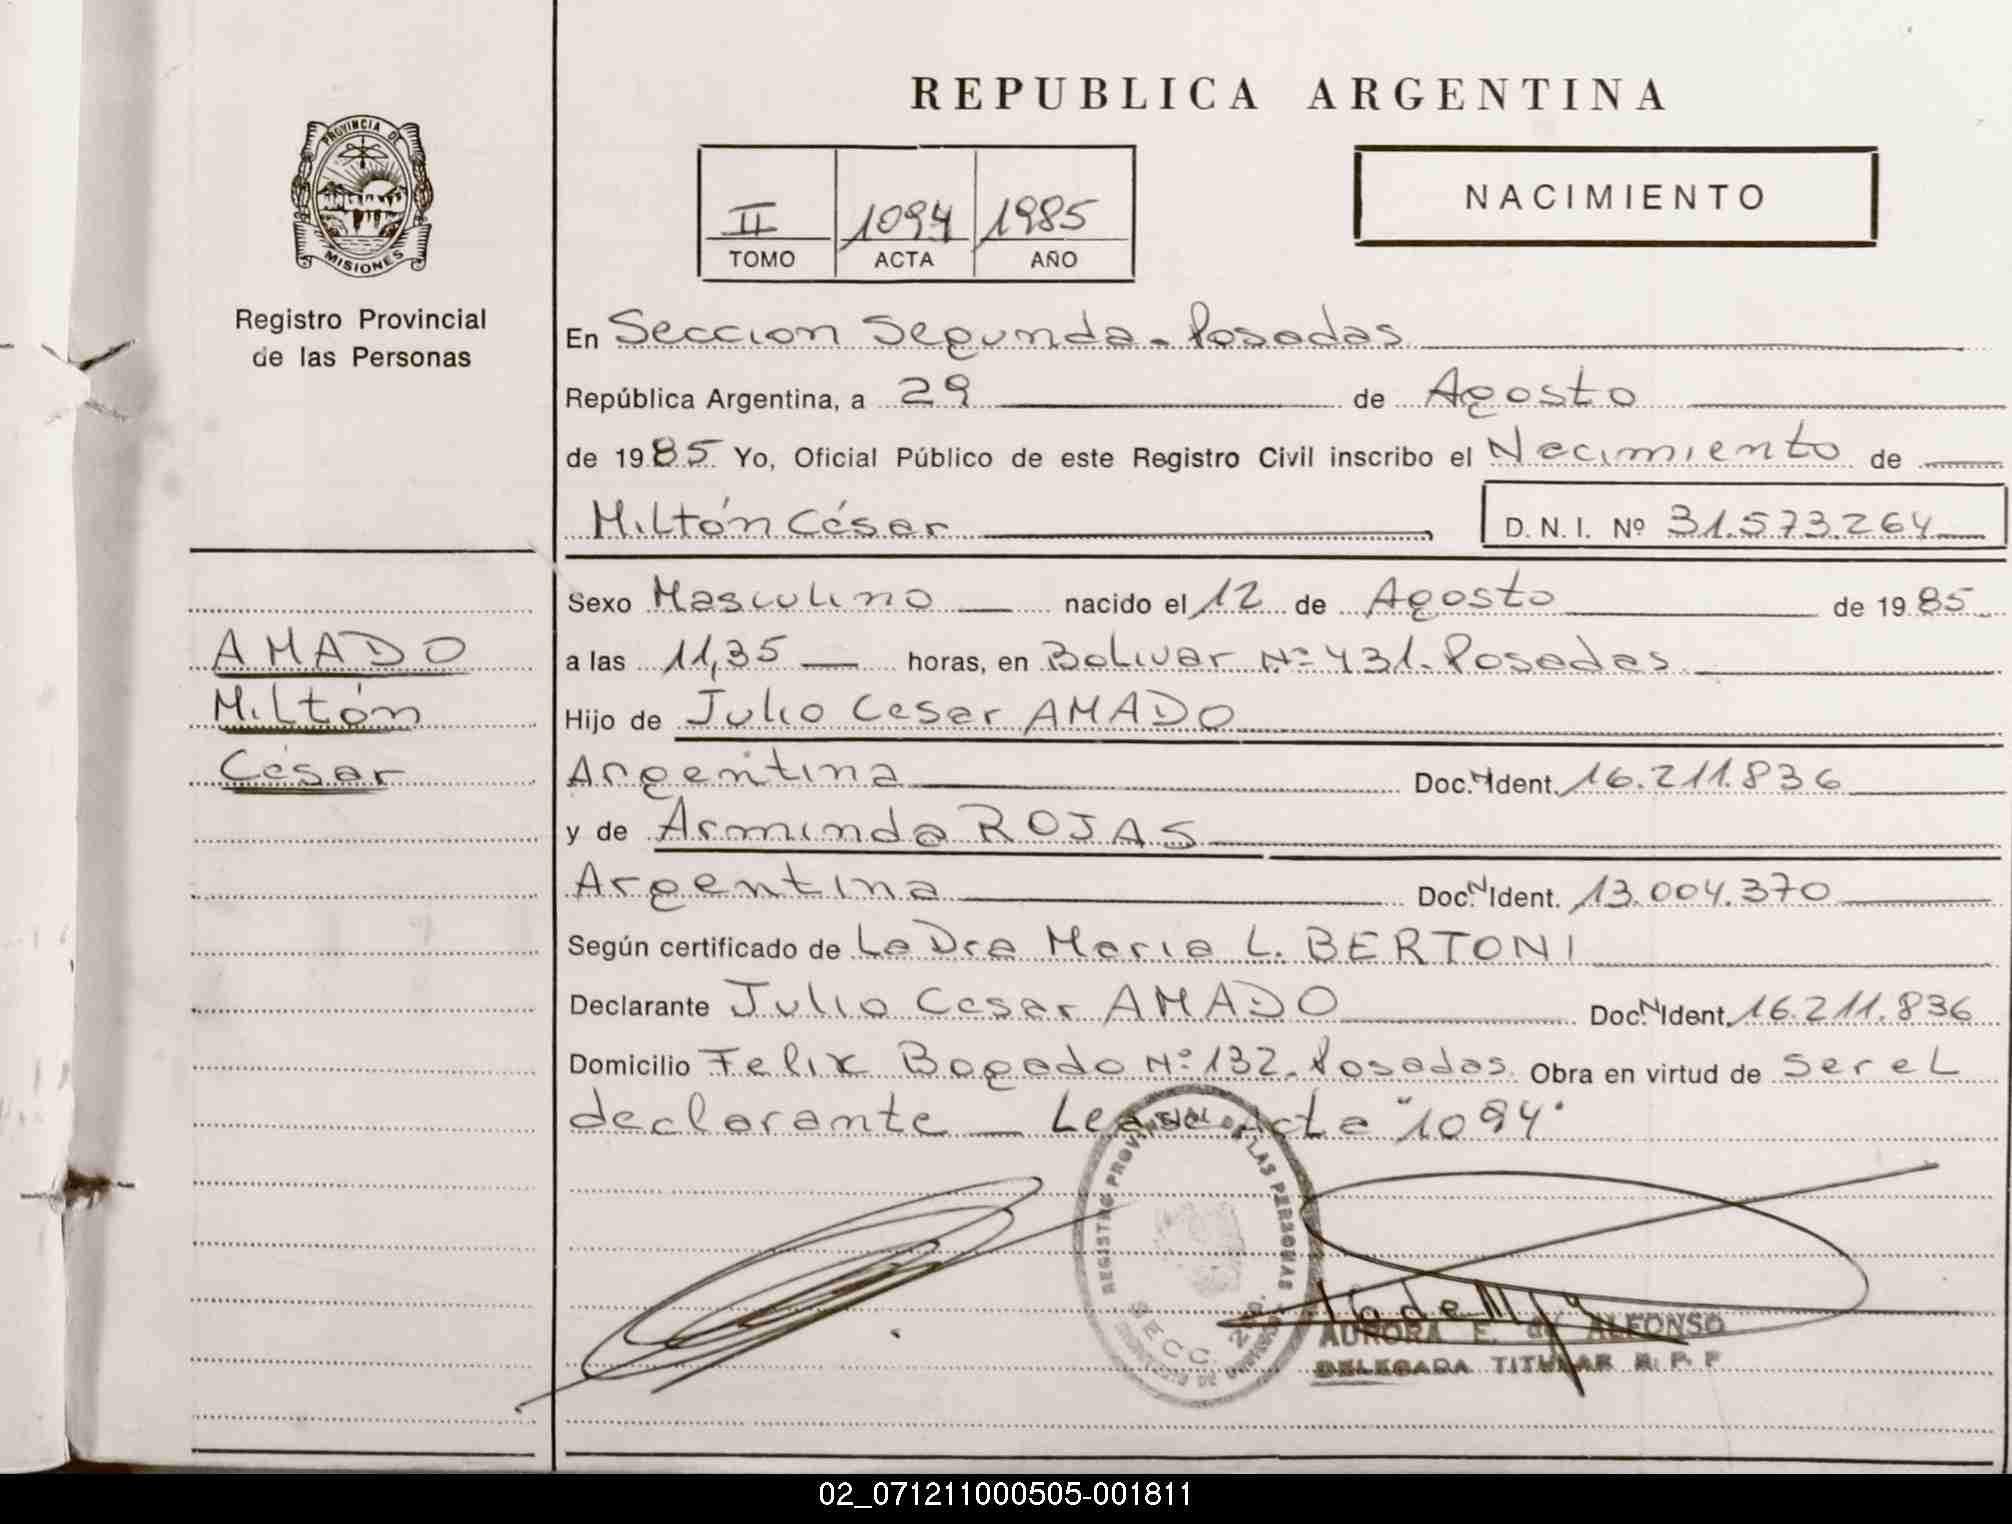 REPUBLICA ARGENTINA
PROVINCIA DE
MISIONES
Registro Provincial
de las Personas
II 1094 1985
TOMO ACTA AÑO
NACIMIENTO
En Seccion Segunda - Posadas
República Argentina, a 29 de Agosto
de 1985 Yo, Oficial Público de este Registro Civil inscribo el Nacimiento de
Miltón César
D. N. I. Nº 31.573.264
AMADO
Miltón
César
Sexo Masculino nacido el 12 de Agosto de 1985
a las 11,35 horas, en Bolivar Nº 431. Posadas
Hijo de Julio Cesar AMADO
Argentina Doc. N Ident. 16.211.836
y de Arminda ROJAS
Argentina Doc. N Ident. 13.004.370
Según certificado de La Dra Maria L. BERTONI
Declarante Julio Cesar AMADO Doc. N Ident. 16.211.836
Domicilio Felix Bogado Nº 132 - Posadas Obra en virtud de ser el
declarante — Lease Acta "1094"
REGISTRO PROVINCIAL DE LAS PERSONAS
SECC. 2da.
AURORA E. de ALFONSO
DELEGADA TITULAR R. P. P
02_071211000505-001811